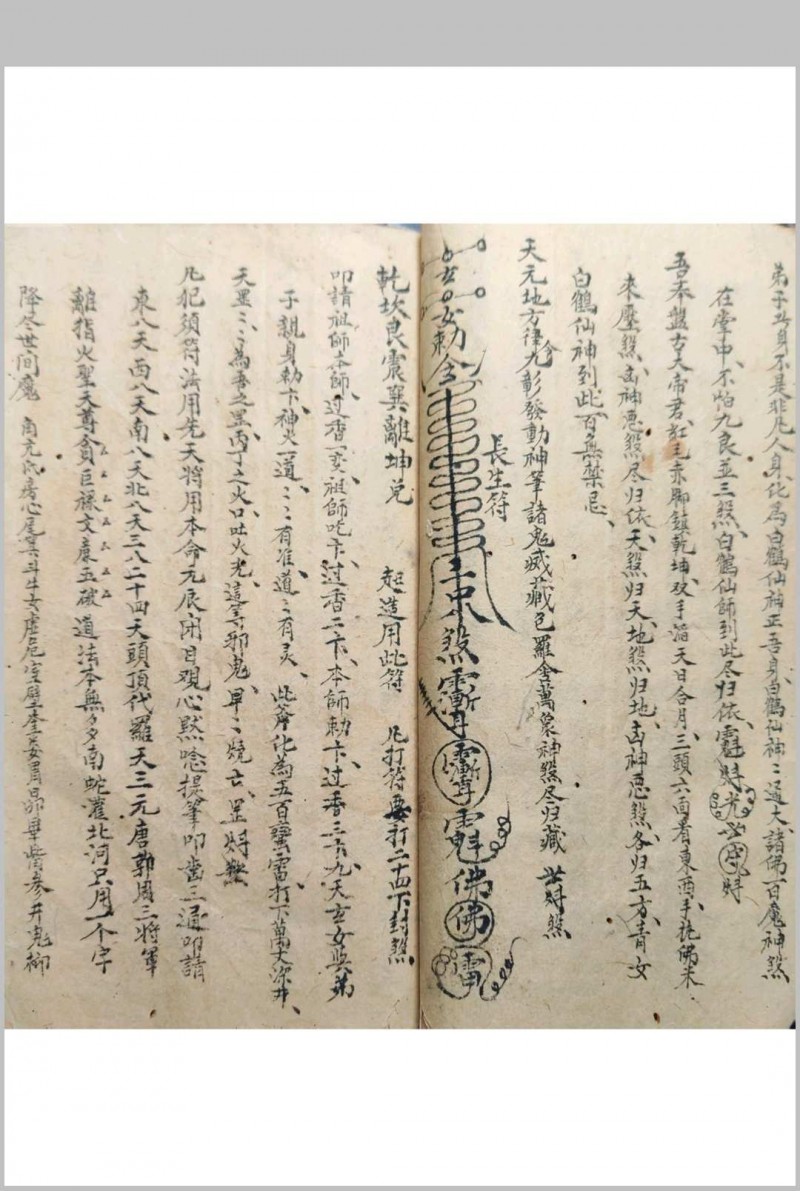 弟子此身不是非凡人身化為白鶴仙神正吾身白鶴仙神ミ通大諸佛百魔神煞
在堂中不怕九良並三煞白鶴仙師到此尽归依
吾奉盤古大帝君紅毛赤脚鎮乾坤双手滔天日合月三頭六面看東西手托佛末
來壓煞凶神恶煞尽归依天煞归天地煞归地凶神恶煞各归五方青女
白鶴仙神到此百無禁忌
天元地方律令九彰發動神筆諸鬼滅藏包羅舍萬象神煞尽归藏
長生符
勅令 煞 魁佛佛
乾坎艮震巽離坤兑 起造用此符 凡打符要打二十四下封煞
叩請祖師本師过香一卞祖師吃卞过香二卞本師勅卞过香三卞九天玄女與弟
子親身勅卞神火一道ミ有准道ミ有灵 此斧化為五百蠻雷打下萬丈深井
天罡ミ為吾之罡丙丁之火口吐火光這等邪鬼早ミ燒亡罡
凡犯須符法用先天將用本命元辰闭目观心默唸提筆叩齒三通叩請
東八天西八天南八天北八天三八二十四天頭頂代羅天三元唐郭周三將軍
離指火聖天尊貪巨祿文廉五破道法本無多南蛇灌北河只用一个字
降尽世间魔 角亢氐房心尾箕斗牛女虚危室壁奎娄胃昴畢觜参井鬼柳